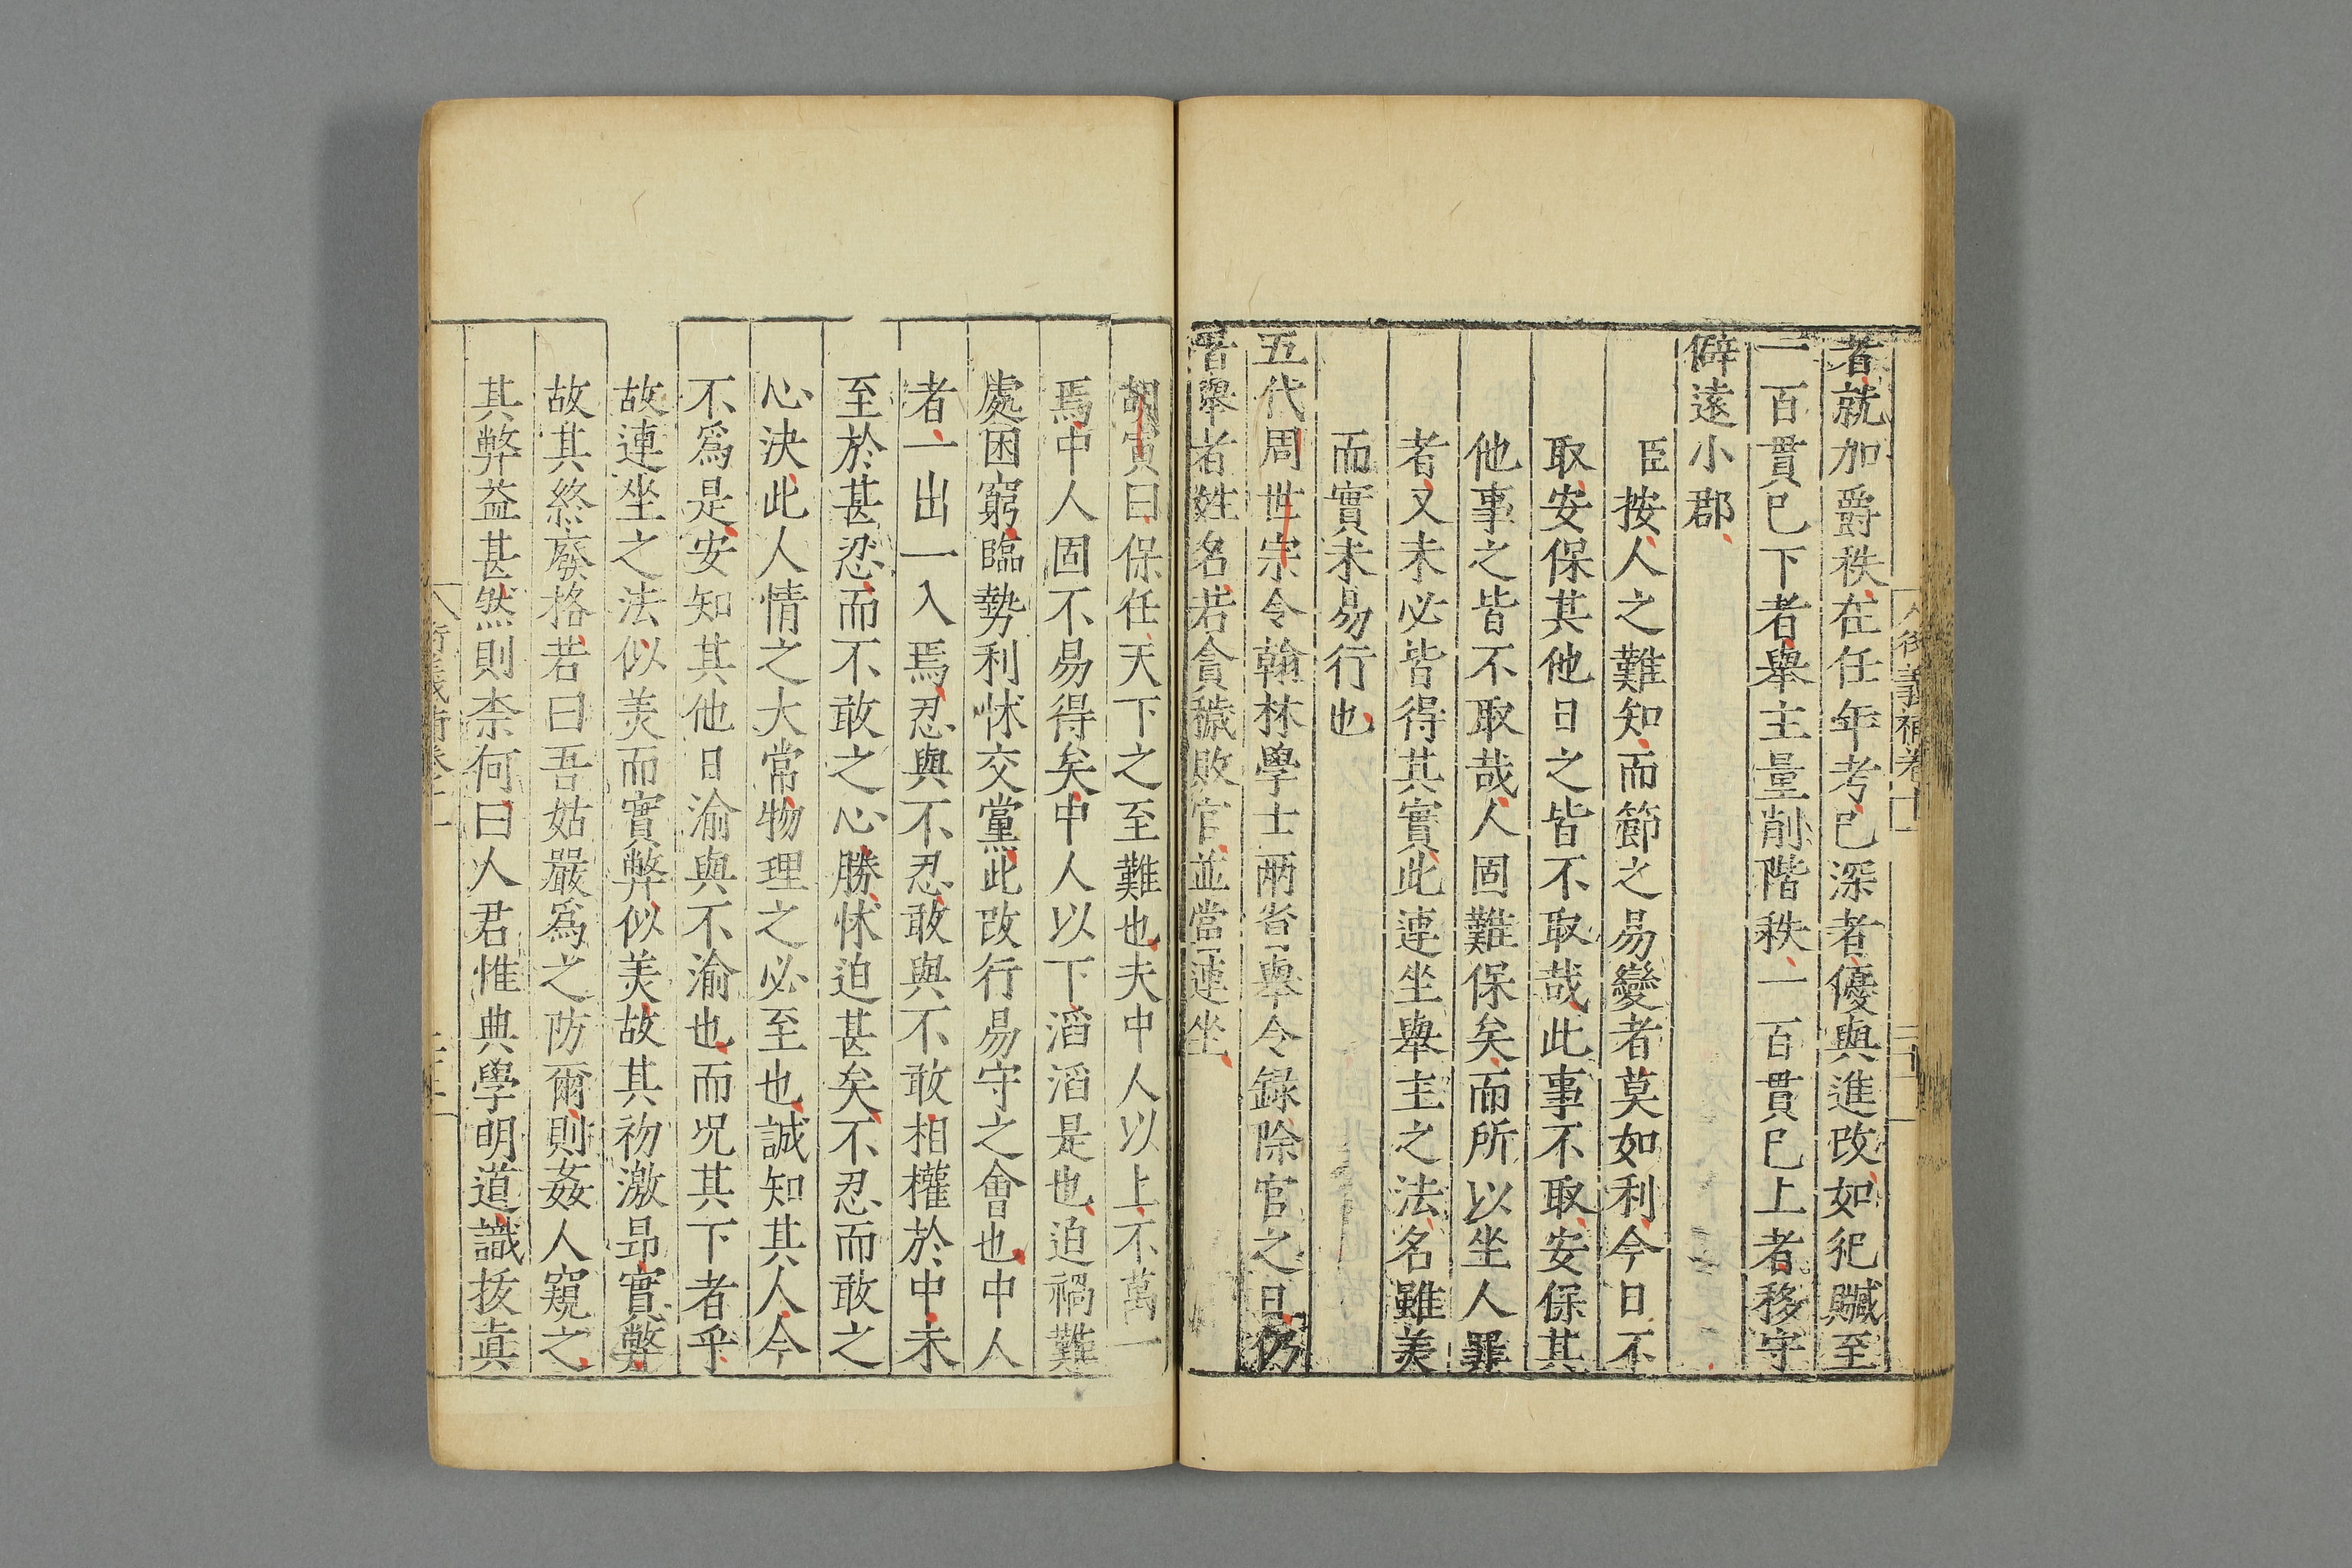 者就加爵秩在任年考已深者優與進改如犯贓至
一百貫已下者舉主量削階秩一百貫已上者移守
僻遠小郡
臣按人之難知而節之易變者莫如利今日不
取安保其他日之皆不取哉此事不取安保其
他事之皆不取哉人固難保矣而所以坐人罪
者又未必皆得其實此連坐舉主之法名雖美
而實未易行也
五代周世宗令翰林學士兩省舉令錄除官之日仍
署舉者姓名若貪穢敗官並當連坐
胡寅曰保任天下之至難也夫中人以上不萬一
焉中人固不易得矣中人以下滔滔是也迫禍難
處困窮臨勢利怵交黨此改行易守之會也中人
者一出一入焉忍與不忍敢與不敢相權於中未
至於甚忍而不敢之心勝怵迫甚矣不忍而敢之
心決此人情之大常物理之必至也誠知其人今
不爲是安知其他日渝與不渝也而况其下者乎
故連坐之法似美而實弊似美故其初激昂實弊
故其終廢格若曰吾姑嚴爲之防爾則姦人窺之
其弊益甚然則柰何曰人君惟典學明道識拔眞